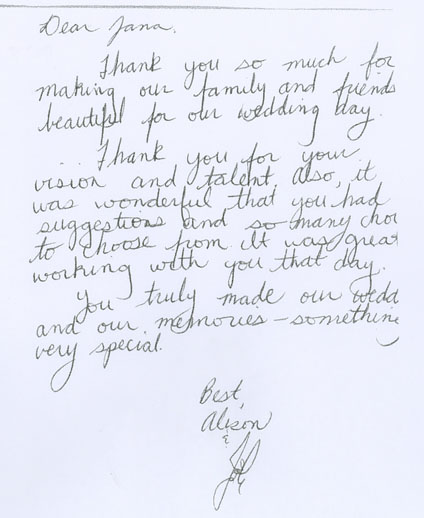 Dear Jana,
Thank you so much for
making our family and friends
beautiful for our wedding day.
... Thank you for your
vision and talent. Also, it
was wonderful that you had
suggestions and so many choi
to choose from. It was great
working with you that day.
You truly made our wedd
and our memories - something
very special.
Best,
Alison
&